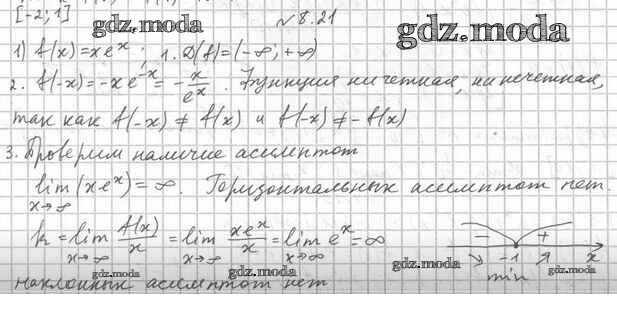 [-2; 1]
№ 8.21
gdz.moda
gdz.moda
1) f(x) = xe^x ; 1. D(f) = (-∞; +∞)
2. f(-x) = -xe^{-x} = -x/e^x . Функция ни четная, ни нечетная,
так как f(-x) ≠ f(x) и f(-x) ≠ -f(x)
3. Проверим наличие асимптот
lim x→∞ (xe^x) = ∞. Горизонтальных асимптот нет.
k = lim x→∞ f(x)/x = lim x→∞ xe^x/x = lim x→∞ e^x = ∞
− + 
↘ -1 ↗ x
min
gdz.moda
gdz.moda
gdz.moda
gdz.moda
gdz.moda
наклонных асимптот нет